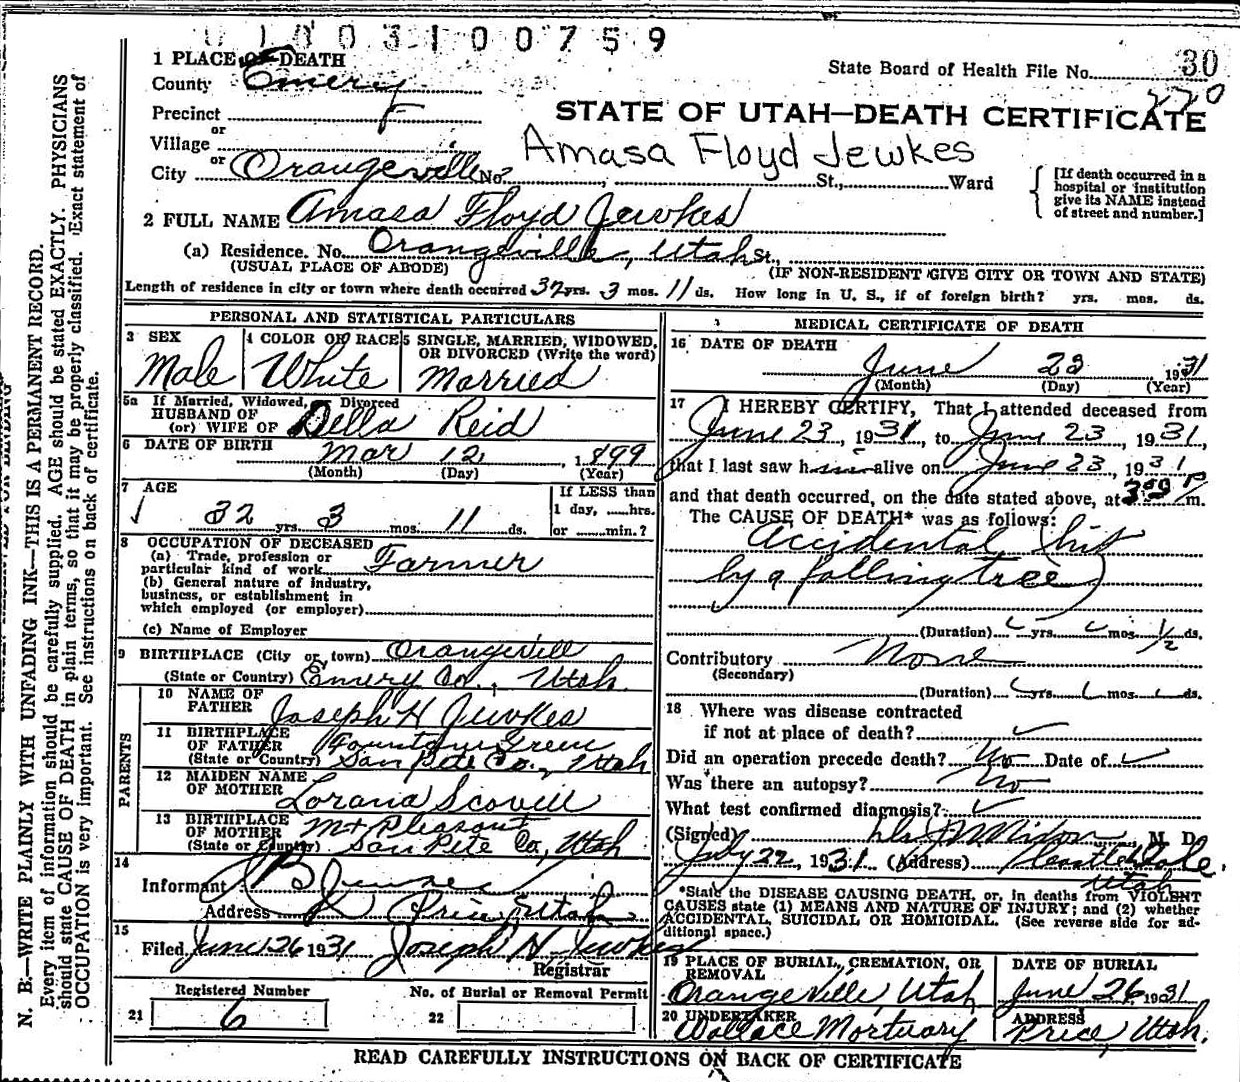 0100310 0759
1 PLACE OF DEATH
County Emery
State Board of Health File No. 30
220
Precinct F
STATE OF UTAH—DEATH CERTIFICATE
or
Village
Amasa Floyd Jewkes
or
City Orangeville No. St., Ward
[If death occurred in a
hospital or institution
give its NAME instead
of street and number.]
2 FULL NAME Amasa Floyd Jewkes
(a) Residence. No. Orangeville, Utah St.,
(USUAL PLACE OF ABODE) (IF NON-RESIDENT GIVE CITY OR TOWN AND STATE)
Length of residence in city or town where death occurred 32 yrs. 3 mos. 11 ds. How long in U. S., if of foreign birth? yrs. mos. ds.
PERSONAL AND STATISTICAL PARTICULARS
3 SEX
Male
4 COLOR OR RACE
White
5 SINGLE, MARRIED, WIDOWED,
OR DIVORCED (Write the word)
Married
5a If Married, Widowed, or Divorced
HUSBAND OF
(or) WIFE OF Della Reid
6 DATE OF BIRTH Mar 12, 1899
(Month) (Day) (Year)
7 AGE
32 yrs. 3 mos. 11 ds.
If LESS than
1 day, ......hrs.
or ........min.?
8 OCCUPATION OF DECEASED
(a) Trade, profession or
particular kind of work Farmer
(b) General nature of industry,
business, or establishment in
which employed (or employer)
(c) Name of Employer
9 BIRTHPLACE (City or town) Orangevill
(State or Country) Emery Co., Utah
PARENTS
10 NAME OF
FATHER Joseph H Jewkes
11 BIRTHPLACE
OF FATHER Fountain Green
(State or Country) San Pete Co., Utah
12 MAIDEN NAME
OF MOTHER Lorana Scovill
13 BIRTHPLACE
OF MOTHER Mt Pleasant
(State or Country) San Pete Co, Utah
14
Informant
Address Price, Utah
15
Filed June 26 1931 Joseph H Jewkes
Registrar
Registered Number
21 6
No. of Burial or Removal Permit
22
MEDICAL CERTIFICATE OF DEATH
16 DATE OF DEATH
June 23 1931
(Month) (Day) (Year)
17 I HEREBY CERTIFY, That I attended deceased from
June 23, 1931, to June 23, 1931,
that I last saw him alive on June 23, 1931
and that death occurred, on the date stated above, at 3:30 P m.
The CAUSE OF DEATH* was as follows:
Accidental (hit
by a falling tree)
(Duration) yrs. mos. 1/2 ds.
Contributory None
(Secondary)
(Duration) yrs. mos. ds.
18 Where was disease contracted
if not at place of death?
Did an operation precede death? No Date of
Was there an autopsy? No
What test confirmed diagnosis?
(Signed) M. D.
July 22, 1931 (Address) Castle Dale,
Utah
*State the DISEASE CAUSING DEATH, or, in deaths from VIOLENT
CAUSES state (1) MEANS AND NATURE OF INJURY; and (2) whether
ACCIDENTAL, SUICIDAL OR HOMICIDAL. (See reverse side for ad-
ditional space.)
19 PLACE OF BURIAL, CREMATION, OR
REMOVAL
Orangeville, Utah
DATE OF BURIAL
June 26 1931
20 UNDERTAKER
Wallace Mortuary
ADDRESS
Price, Utah.
READ CAREFULLY INSTRUCTIONS ON BACK OF CERTIFICATE
N. B.—WRITE PLAINLY WITH UNFADING INK—THIS IS A PERMANENT RECORD.
Every item of information should be carefully supplied. AGE should be stated EXACTLY. PHYSICIANS
should state CAUSE OF DEATH in plain terms, so that it may be properly classified. Exact statement of
OCCUPATION is very important. See instructions on back of certificate.